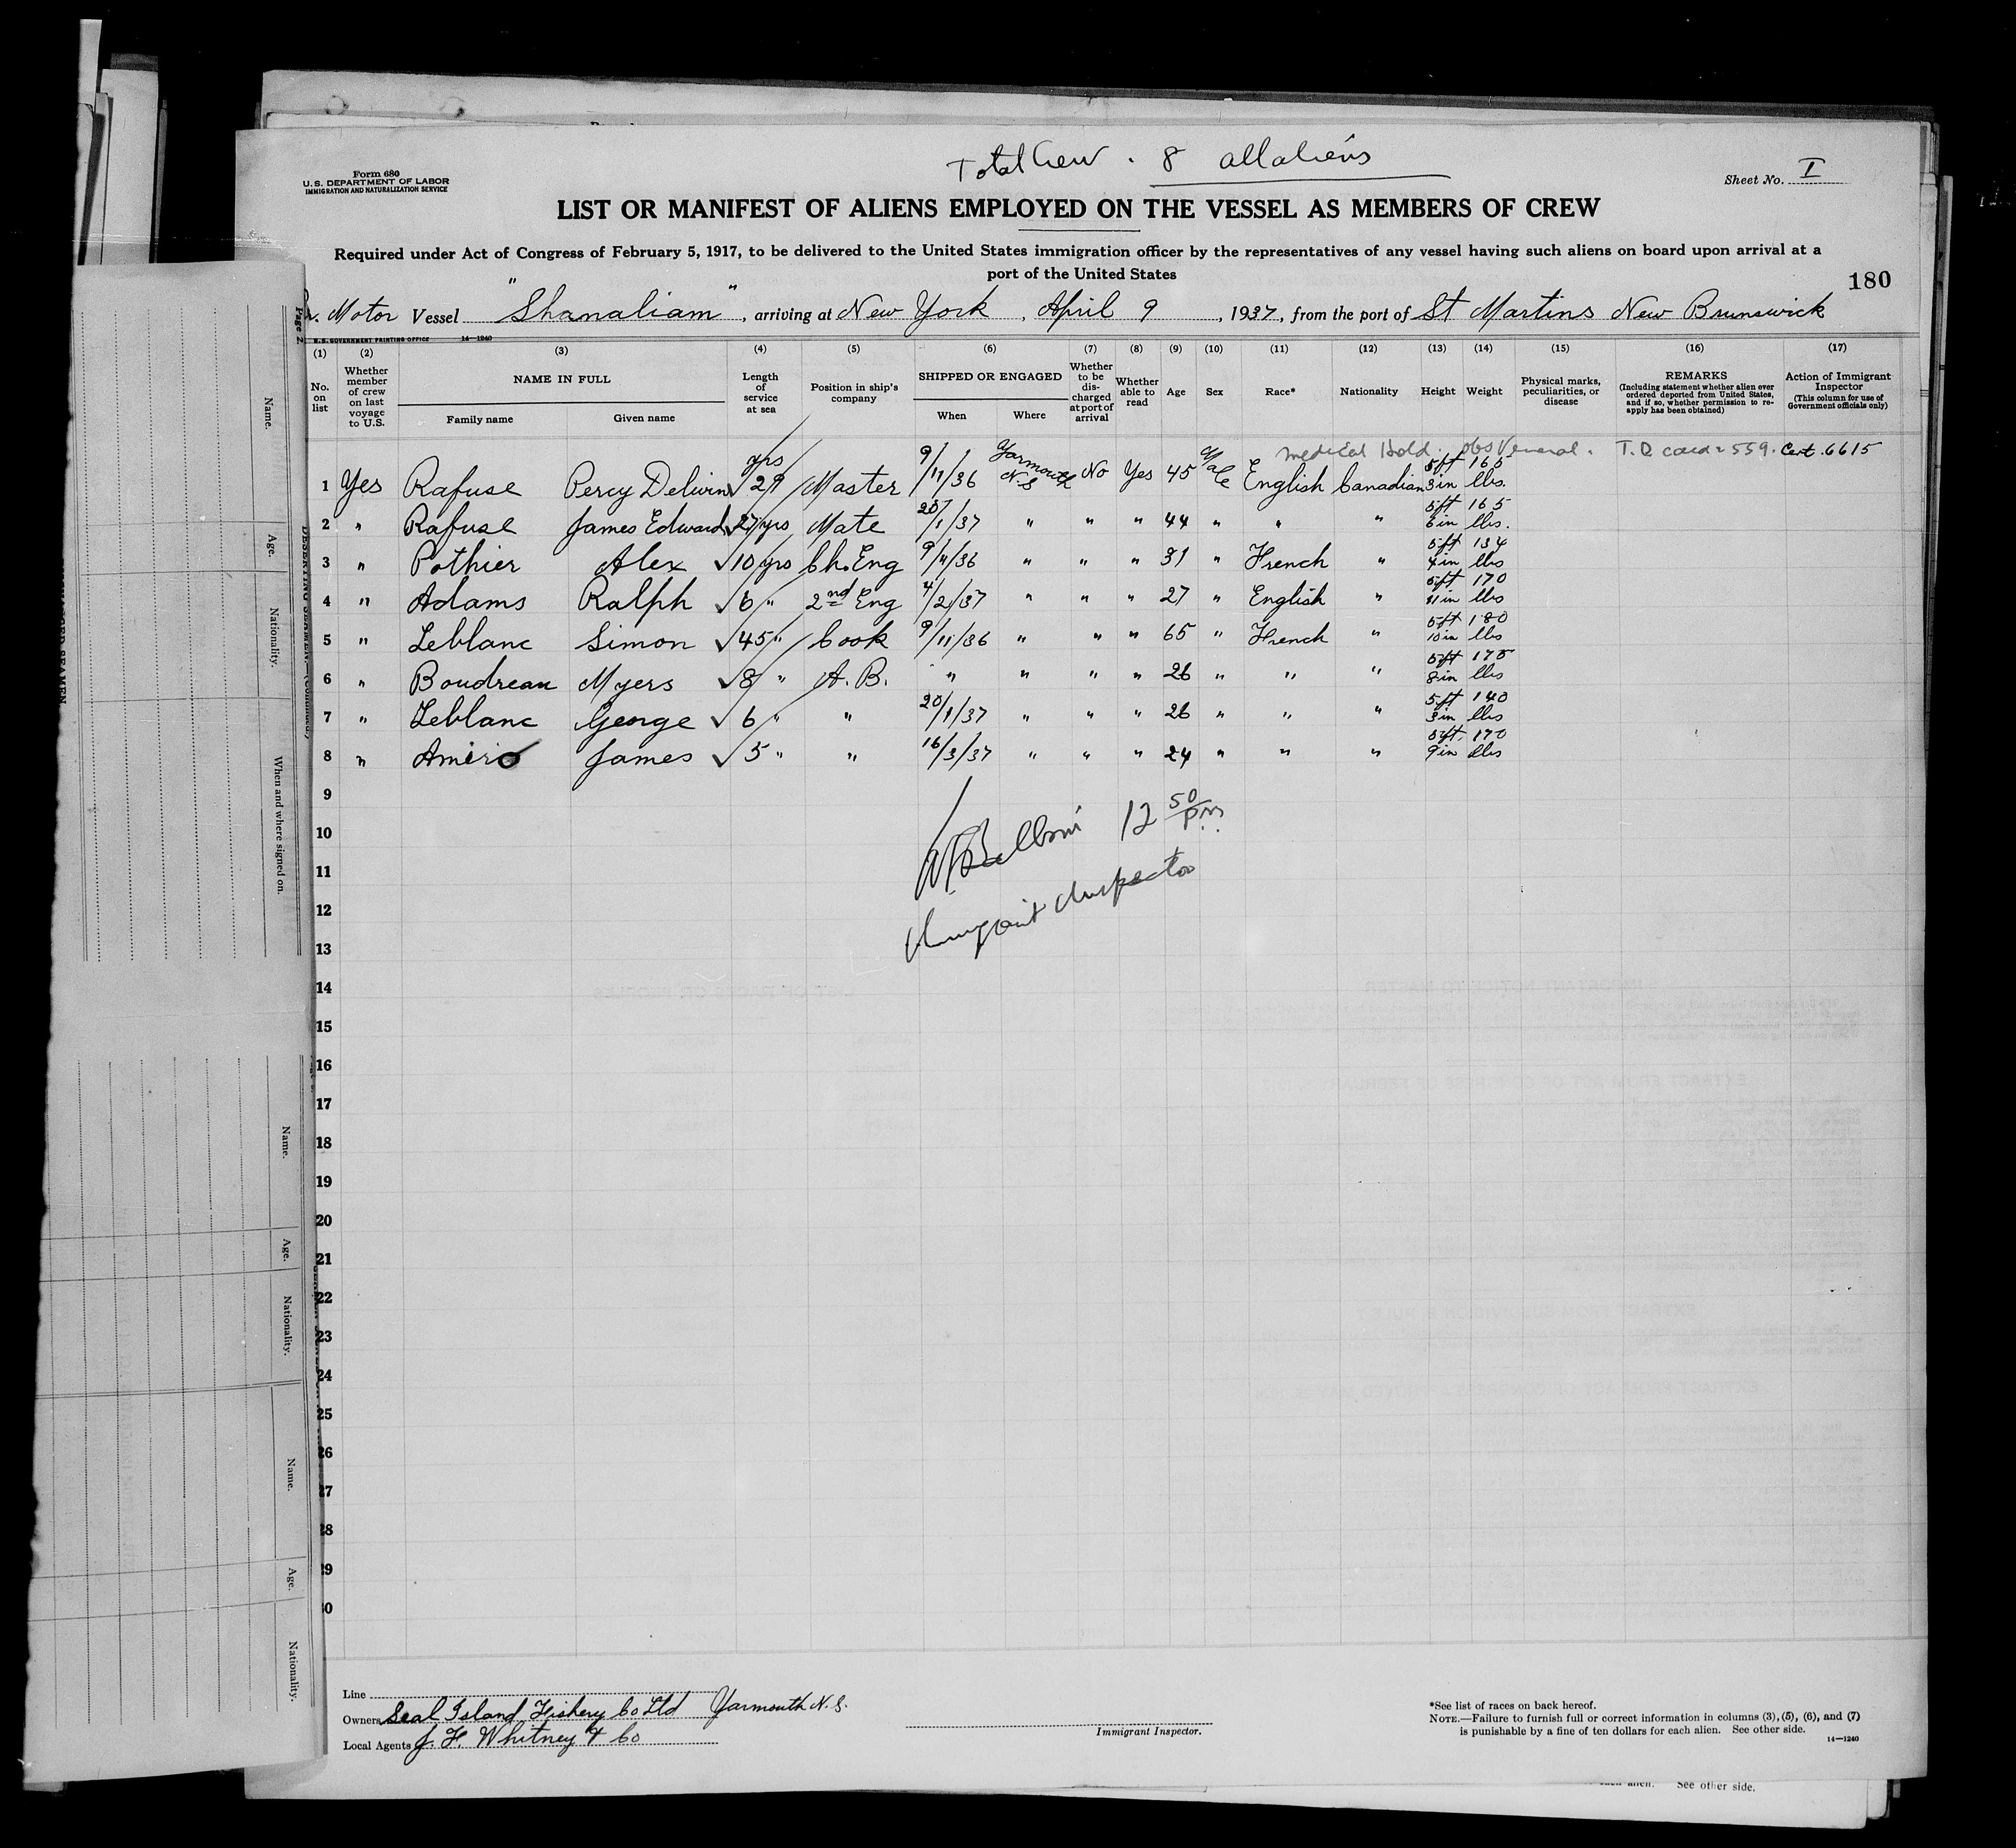 Total Crew . 8 all aliens
Form 680
U.S. DEPARTMENT OF LABOR
IMMIGRATION AND NATURALIZATION SERVICE
Sheet No. I
LIST OR MANIFEST OF ALIENS EMPLOYED ON THE VESSEL AS MEMBERS OF CREW
Required under Act of Congress of February 5, 1917, to be delivered to the United States immigration officer by the representatives of any vessel having such aliens on board upon arrival at a
port of the United States
180
Motor Vessel "Shanaliam", arriving at New York, April 9, 1937, from the port of St Martins New Brunswick
Page 2
U.S. GOVERNMENT PRINTING OFFICE 14-1240
(1) (2) (3) (4) (5) (6) (7) (8) (9) (10) (11) (12) (13) (14) (15) (16) (17)
No. on list
Whether member of crew on last voyage to U.S.
NAME IN FULL
Family name Given name
Length of service at sea
Position in ship's company
SHIPPED OR ENGAGED
When Where
Whether to be discharged at port of arrival
Whether able to read
Age
Sex
Race*
Nationality
Height
Weight
Physical marks, peculiarities, or disease
REMARKS
(Including statement whether alien ever ordered deported from United States, and if so, whether permission to reapply has been obtained)
Action of Immigrant Inspector
(This column for use of Government officials only)
medical Hold. obs Veneral. T.D card 2559. Cert. 6615
1 Yes Rafuse Percy Delwin √ 29 yrs Master 9/11/36 Yarmouth N.S No Yes 45 Male English Canadian 5ft 3in 165 lbs.
2 " Rafuse James Edward √ 27 yrs Mate 20/1/37 " " " 44 " " " 5ft 6in 165 lbs.
3 " Pothier Alex √ 10 yrs Ch. Eng 9/11/36 " " " 31 " French " 5ft 4in 134 lbs
4 " Adams Ralph √ 6 " 2nd Eng 4/2/37 " " " 27 " English " 5ft 11in 170 lbs
5 " Leblanc Simon √ 45 " Cook 9/11/36 " " " 65 " French " 5ft 10in 180 lbs
6 " Boudreau Myers √ 8 " A. B. " " " " 26 " " " 5ft 8in 175 lbs
7 " Leblanc George √ 6 " " 20/1/37 " " " 26 " " " 5ft 3in 140 lbs
8 " Amiro James √ 5 " " 16/3/37 " " " 24 " " " 5ft. 9in 170 lbs
9
10
11
12
13
14
15
16
17
18
19
20
21
22
23
24
25
26
27
28
29
30
12 50 pm
Immigrant Inspector
Line
Owners Seal Island Fishery Co Ltd Yarmouth N.S.
Local Agents J. F. Whitney & Co
Immigrant Inspector.
*See list of races on back hereof.
NOTE.—Failure to furnish full or correct information in columns (3), (5), (6), and (7)
is punishable by a fine of ten dollars for each alien. See other side.
14—1240
See other side.
Name.
Age.
Nationality.
When and where signed on.
Name.
Age.
Nationality.
Name.
Age.
Nationality.